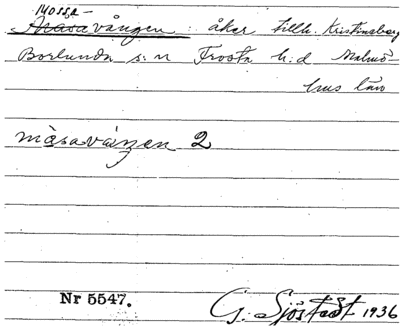 Mossa-
Måsavången : åker tillh. Kristinsberg
Borlunda s:n Frosta h:d Malmö-
hus län
måsavåŋen 2
Nr 5547.
G. Sjöstedt 1936